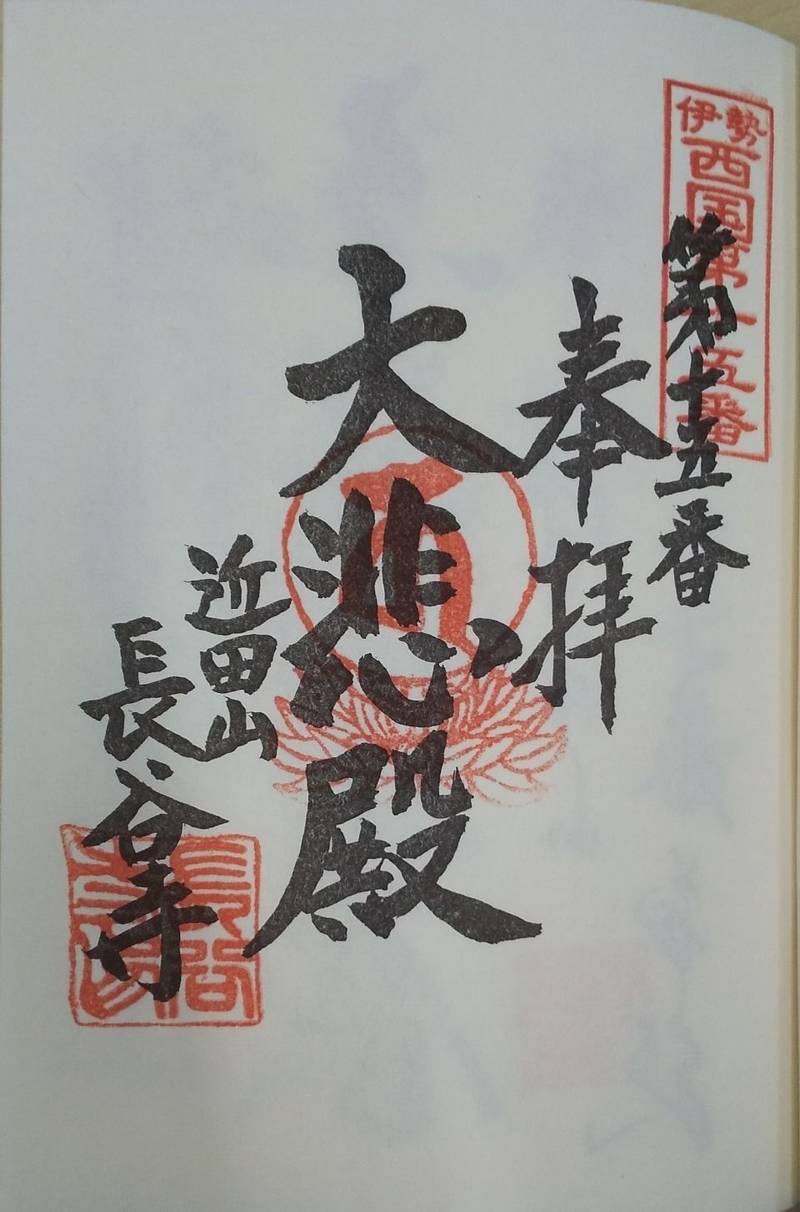 伊勢
西国第十五番
第十五番
奉拝
大悲殿
近田山
長谷寺